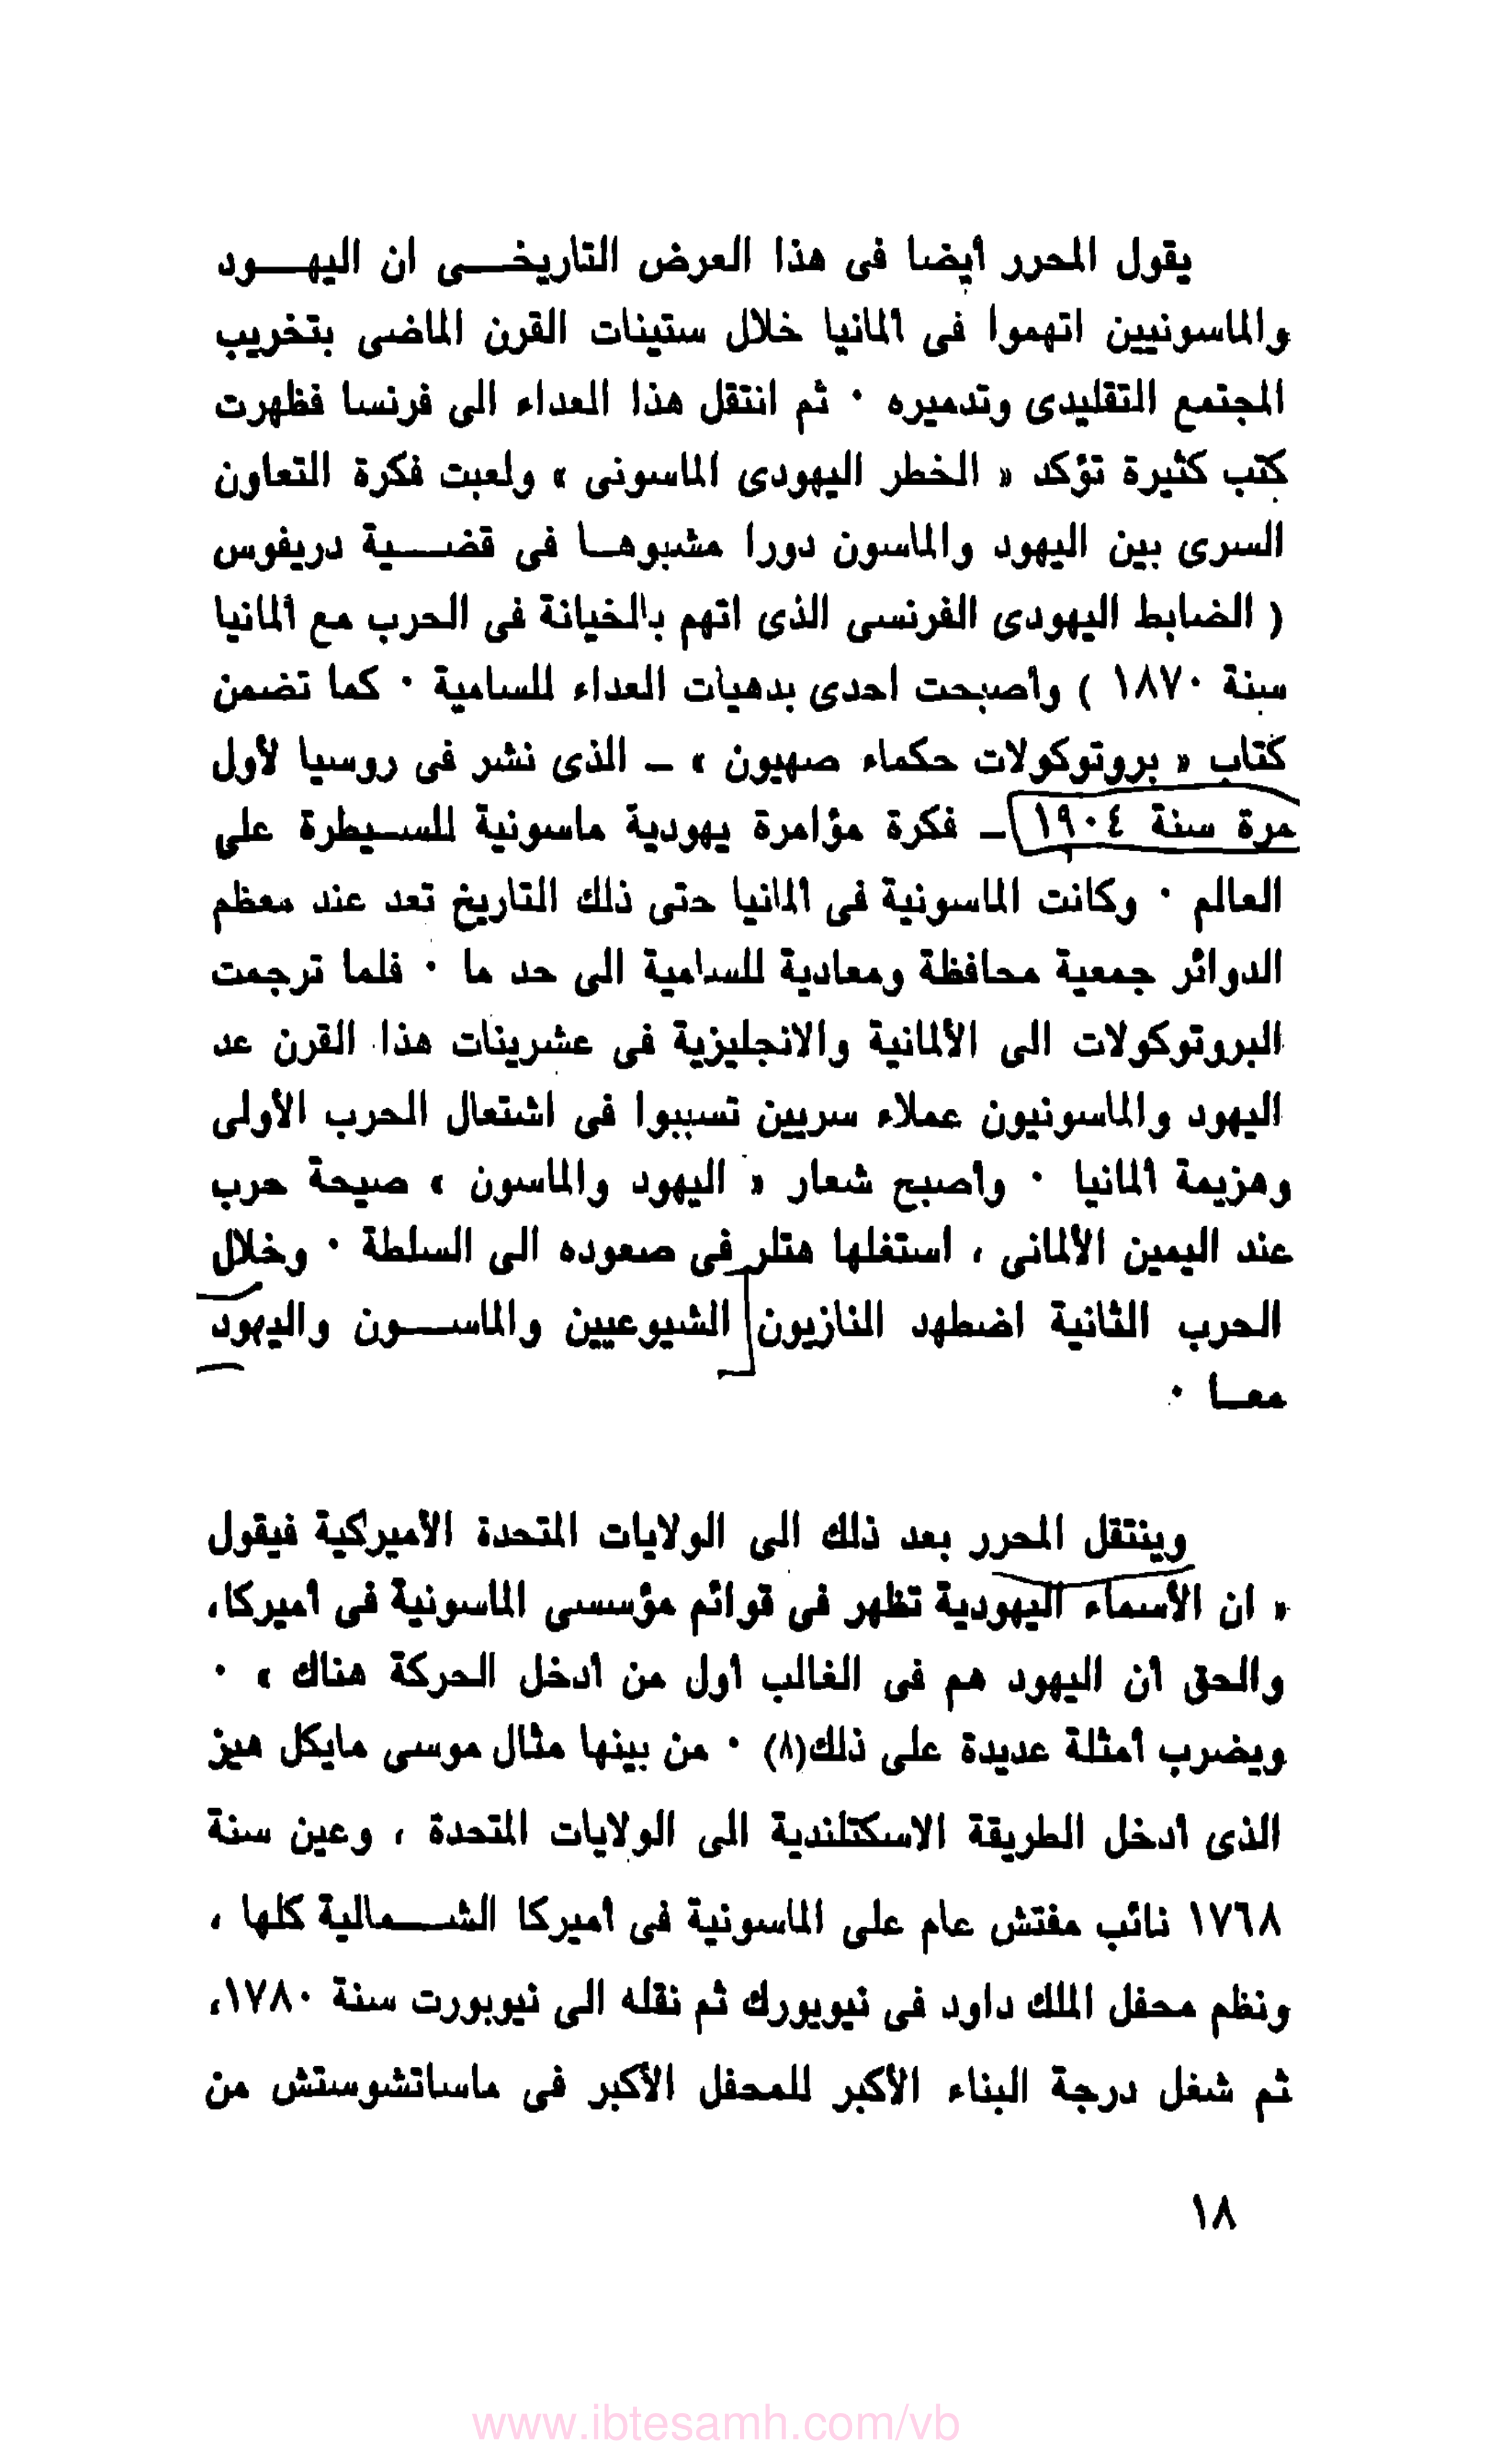 يقول المحرر أيضا فى هذا العرض التاريخى ان اليهود
والماسونيين اتهموا فى ألمانيا خلال ستينات القرن الماضى بتخريب
المجتمع التقليدى وتدميره ٠ ثم انتقل هذا العداء الى فرنسا فظهرت
كتب كثيرة تؤكد « الخطر اليهودى الماسونى » ولعبت فكرة التعاون
السرى بين اليهود والماسون دورا مشبوها فى قضية دريفوس
( الضابط اليهودى الفرنسى الذى اتهم بالخيانة فى الحرب مع ألمانيا
سنة ١٨٧٠ ) وأصبحت احدى بدهيات العداء للسامية ٠ كما تضمن
كتاب « بروتوكولات حكماء صهيون » – الذى نشر فى روسيا لأول
مرة سنة ١٩٠٤ – فكرة مؤامرة يهودية ماسونية للسيطرة على
العالم ٠ وكانت الماسونية فى ألمانيا حتى ذلك التاريخ تعد عند معظم
الدوائر جمعية محافظة ومعادية للسامية الى حد ما ٠ فلما ترجمت
البروتوكولات الى الألمانية والانجليزية فى عشرينات هذا القرن عد
اليهود والماسونيون عملاء سريين تسببوا فى اشتعال الحرب الأولى
وهزيمة ألمانيا ٠ وأصبح شعار « اليهود والماسون » صيحة حرب
عند اليمين الألمانى ، استغلها هتلر فى صعوده الى السلطة ٠ وخلال
الحرب الثانية اضطهد النازيون الشيوعيين والماسون واليهود
معا ٠
وينتقل المحرر بعد ذلك الى الولايات المتحدة الأميركية فيقول
« ان الأسماء اليهودية تظهر فى قوائم مؤسسى الماسونية فى أميركا،
والحق أن اليهود هم فى الغالب أول من أدخل الحركة هناك » ٠
ويضرب أمثلة عديدة على ذلك(٨) ٠ من بينها مثال موسى مايكل هيز
الذى أدخل الطريقة الاسكتلندية الى الولايات المتحدة ، وعين سنة
١٧٦٨ نائب مفتش عام على الماسونية فى أميركا الشمالية كلها ،
ونظم محفل الملك داود فى نيويورك ثم نقله الى نيوبورت سنة ١٧٨٠،
ثم شغل درجة البناء الأكبر للمحفل الأكبر فى ماساتشوستش من
١٨
www.ibtesamh.com/vb